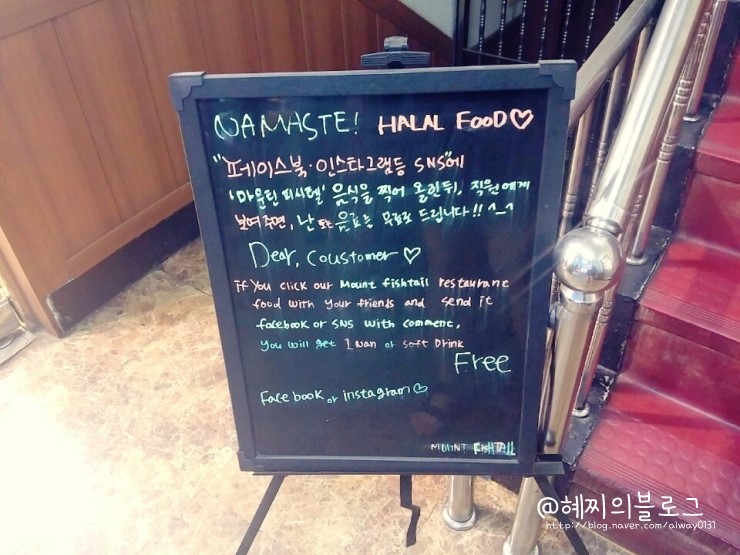 NAMASTE! HALAL FOOD♡
"페이스북·인스타그램등 SNS"에
'마운틴 피시텔' 음식을 찍어 올린뒤, 직원에게
보여주면, 난 또는 음료를 무료로 드립니다!! ^_^
Dear, Coustomer ♡
if you click our Mount fishtail restaurant
food with your friends and send it
facebook or SNS with comment,
you will get 1 nan or soft Drink
Free
Facebook or instagram♡
MOUNT FISHTAIL
@혜찌의블로그
http://blog.naver.com/alway0131